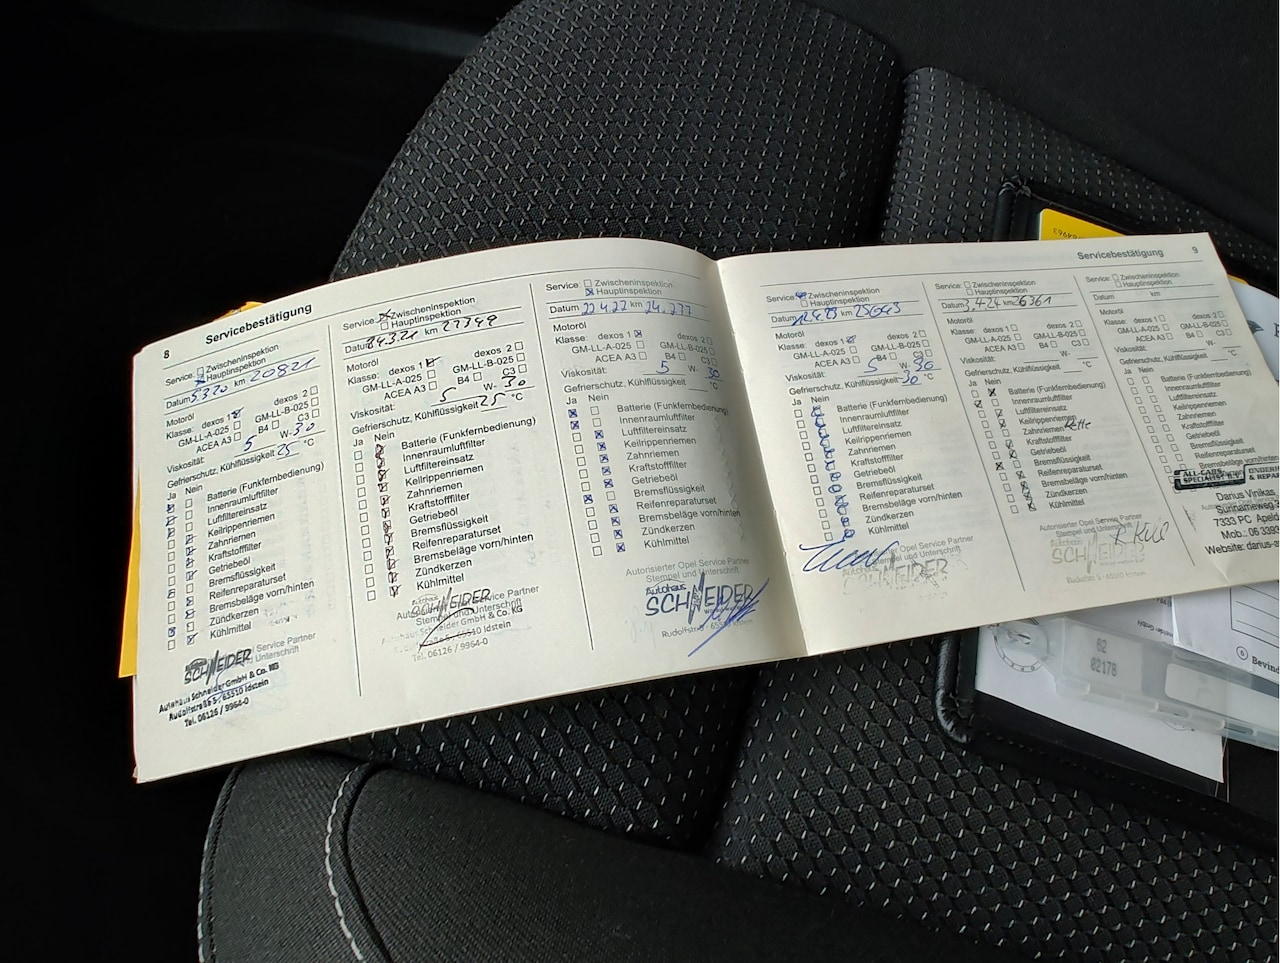 8 Servicebestätigung
Service: Zwischeninspektion
Hauptinspektion
Datum 5.3.20 km 20821
Motoröl
Klasse: dexos 1 dexos 2
GM-LL-A-025 GM-LL-B-025
ACEA A3 B4 C3
Viskosität: 5 W- 30
Gefrierschutz, Kühlflüssigkeit 25 °C
Ja Nein
Batterie (Funkfernbedienung)
Innenraumluftfilter
Luftfiltereinsatz
Keilrippenriemen
Zahnriemen
Kraftstofffilter
Getriebeöl
Bremsflüssigkeit
Reifenreparaturset
Bremsbeläge vorn/hinten
Zündkerzen
Kühlmittel
Service Partner
Unterschrift
SCHNEIDER
Autohaus Schneider GmbH & Co. KG
Rudolfstraße 5 / 65510 Idstein
Tel. 06126 / 9964-0
Service: Zwischeninspektion
Hauptinspektion
Datum 3.21 km 23349
Motoröl
Klasse: dexos 1 dexos 2
GM-LL-A-025 GM-LL-B-025
ACEA A3 B4 C3
Viskosität: 5 W- 30
Gefrierschutz, Kühlflüssigkeit 25 °C
Ja Nein
Batterie (Funkfernbedienung)
Innenraumluftfilter
Luftfiltereinsatz
Keilrippenriemen
Zahnriemen
Kraftstofffilter
Getriebeöl
Bremsflüssigkeit
Reifenreparaturset
Bremsbeläge vorn/hinten
Zündkerzen
Kühlmittel
Autohaus
SCHNEIDER
Service Partner
Stempel und Unterschrift
Schneider GmbH & Co. KG
65510 Idstein
Tel. 06126 / 9964-0
Service: Zwischeninspektion
Hauptinspektion
Datum 22.4.22 km 24.277
Motoröl
Klasse: dexos 1 dexos 2
GM-LL-A-025 GM-LL-B-025
ACEA A3 B4 C3
Viskosität: 5 W- 30
Gefrierschutz, Kühlflüssigkeit °C
Ja Nein
Batterie (Funkfernbedienung)
Innenraumluftfilter
Luftfiltereinsatz
Keilrippenriemen
Zahnriemen
Kraftstofffilter
Getriebeöl
Bremsflüssigkeit
Reifenreparaturset
Bremsbeläge vorn/hinten
Zündkerzen
Kühlmittel
Autorisierter Opel Service Partner
Stempel und Unterschrift
Autohaus
SCHNEIDER
Rudolfstr. 5 - 65510 Idstein
Servicebestätigung 9
Service: Zwischeninspektion
Hauptinspektion
Datum km 25663
Motoröl
Klasse: dexos 1 dexos 2
GM-LL-A-025 GM-LL-B-025
ACEA A3 B4 C3
Viskosität: 5 W- 30
Gefrierschutz, Kühlflüssigkeit 30 °C
Ja Nein
Batterie (Funkfernbedienung)
Innenraumluftfilter
Luftfiltereinsatz
Keilrippenriemen
Zahnriemen
Kraftstofffilter
Getriebeöl
Bremsflüssigkeit
Reifenreparaturset
Bremsbeläge vorn/hinten
Zündkerzen
Kühlmittel
Opel Service Partner
Unterschrift
SCHNEIDER
Service: Zwischeninspektion
Hauptinspektion
Datum 3.4.24 km 26361
Motoröl
Klasse: dexos 1 dexos 2
GM-LL-A-025 GM-LL-B-025
ACEA A3 B4 C3
Viskosität: W-
Gefrierschutz, Kühlflüssigkeit °C
Ja Nein
Batterie (Funkfernbedienung)
Innenraumluftfilter
Luftfiltereinsatz
Keilrippenriemen
Zahnriemen Kette
Kraftstofffilter
Getriebeöl
Bremsflüssigkeit
Reifenreparaturset
Bremsbeläge vorn/hinten
Zündkerzen
Kühlmittel
Autorisierter Opel Service Partner
Stempel und Unterschrift
Autohaus
SCHNEIDER
Rudolfstr. 5 - 65510 Idstein
Service: Zwischeninspektion
Hauptinspektion
Datum km
Motoröl
Klasse: dexos 1 dexos 2
GM-LL-A-025 GM-LL-B-025
ACEA A3 B4 C3
Viskosität: W-
Gefrierschutz, Kühlflüssigkeit °C
Ja Nein
Batterie (Funkfernbedienung)
Innenraumluftfilter
Luftfiltereinsatz
Keilrippenriemen
Zahnriemen
Kraftstofffilter
Getriebeöl
Bremsflüssigkeit
Reifenreparaturset
Bremsbeläge vorn/hinten
ALL-CARS
SPECIALIST
& REPA
Darius Vinikas
Surinameweg
7333 PC Apeld
Mob.: 06 339
Website: darius-a
62
02178
6 Bevind